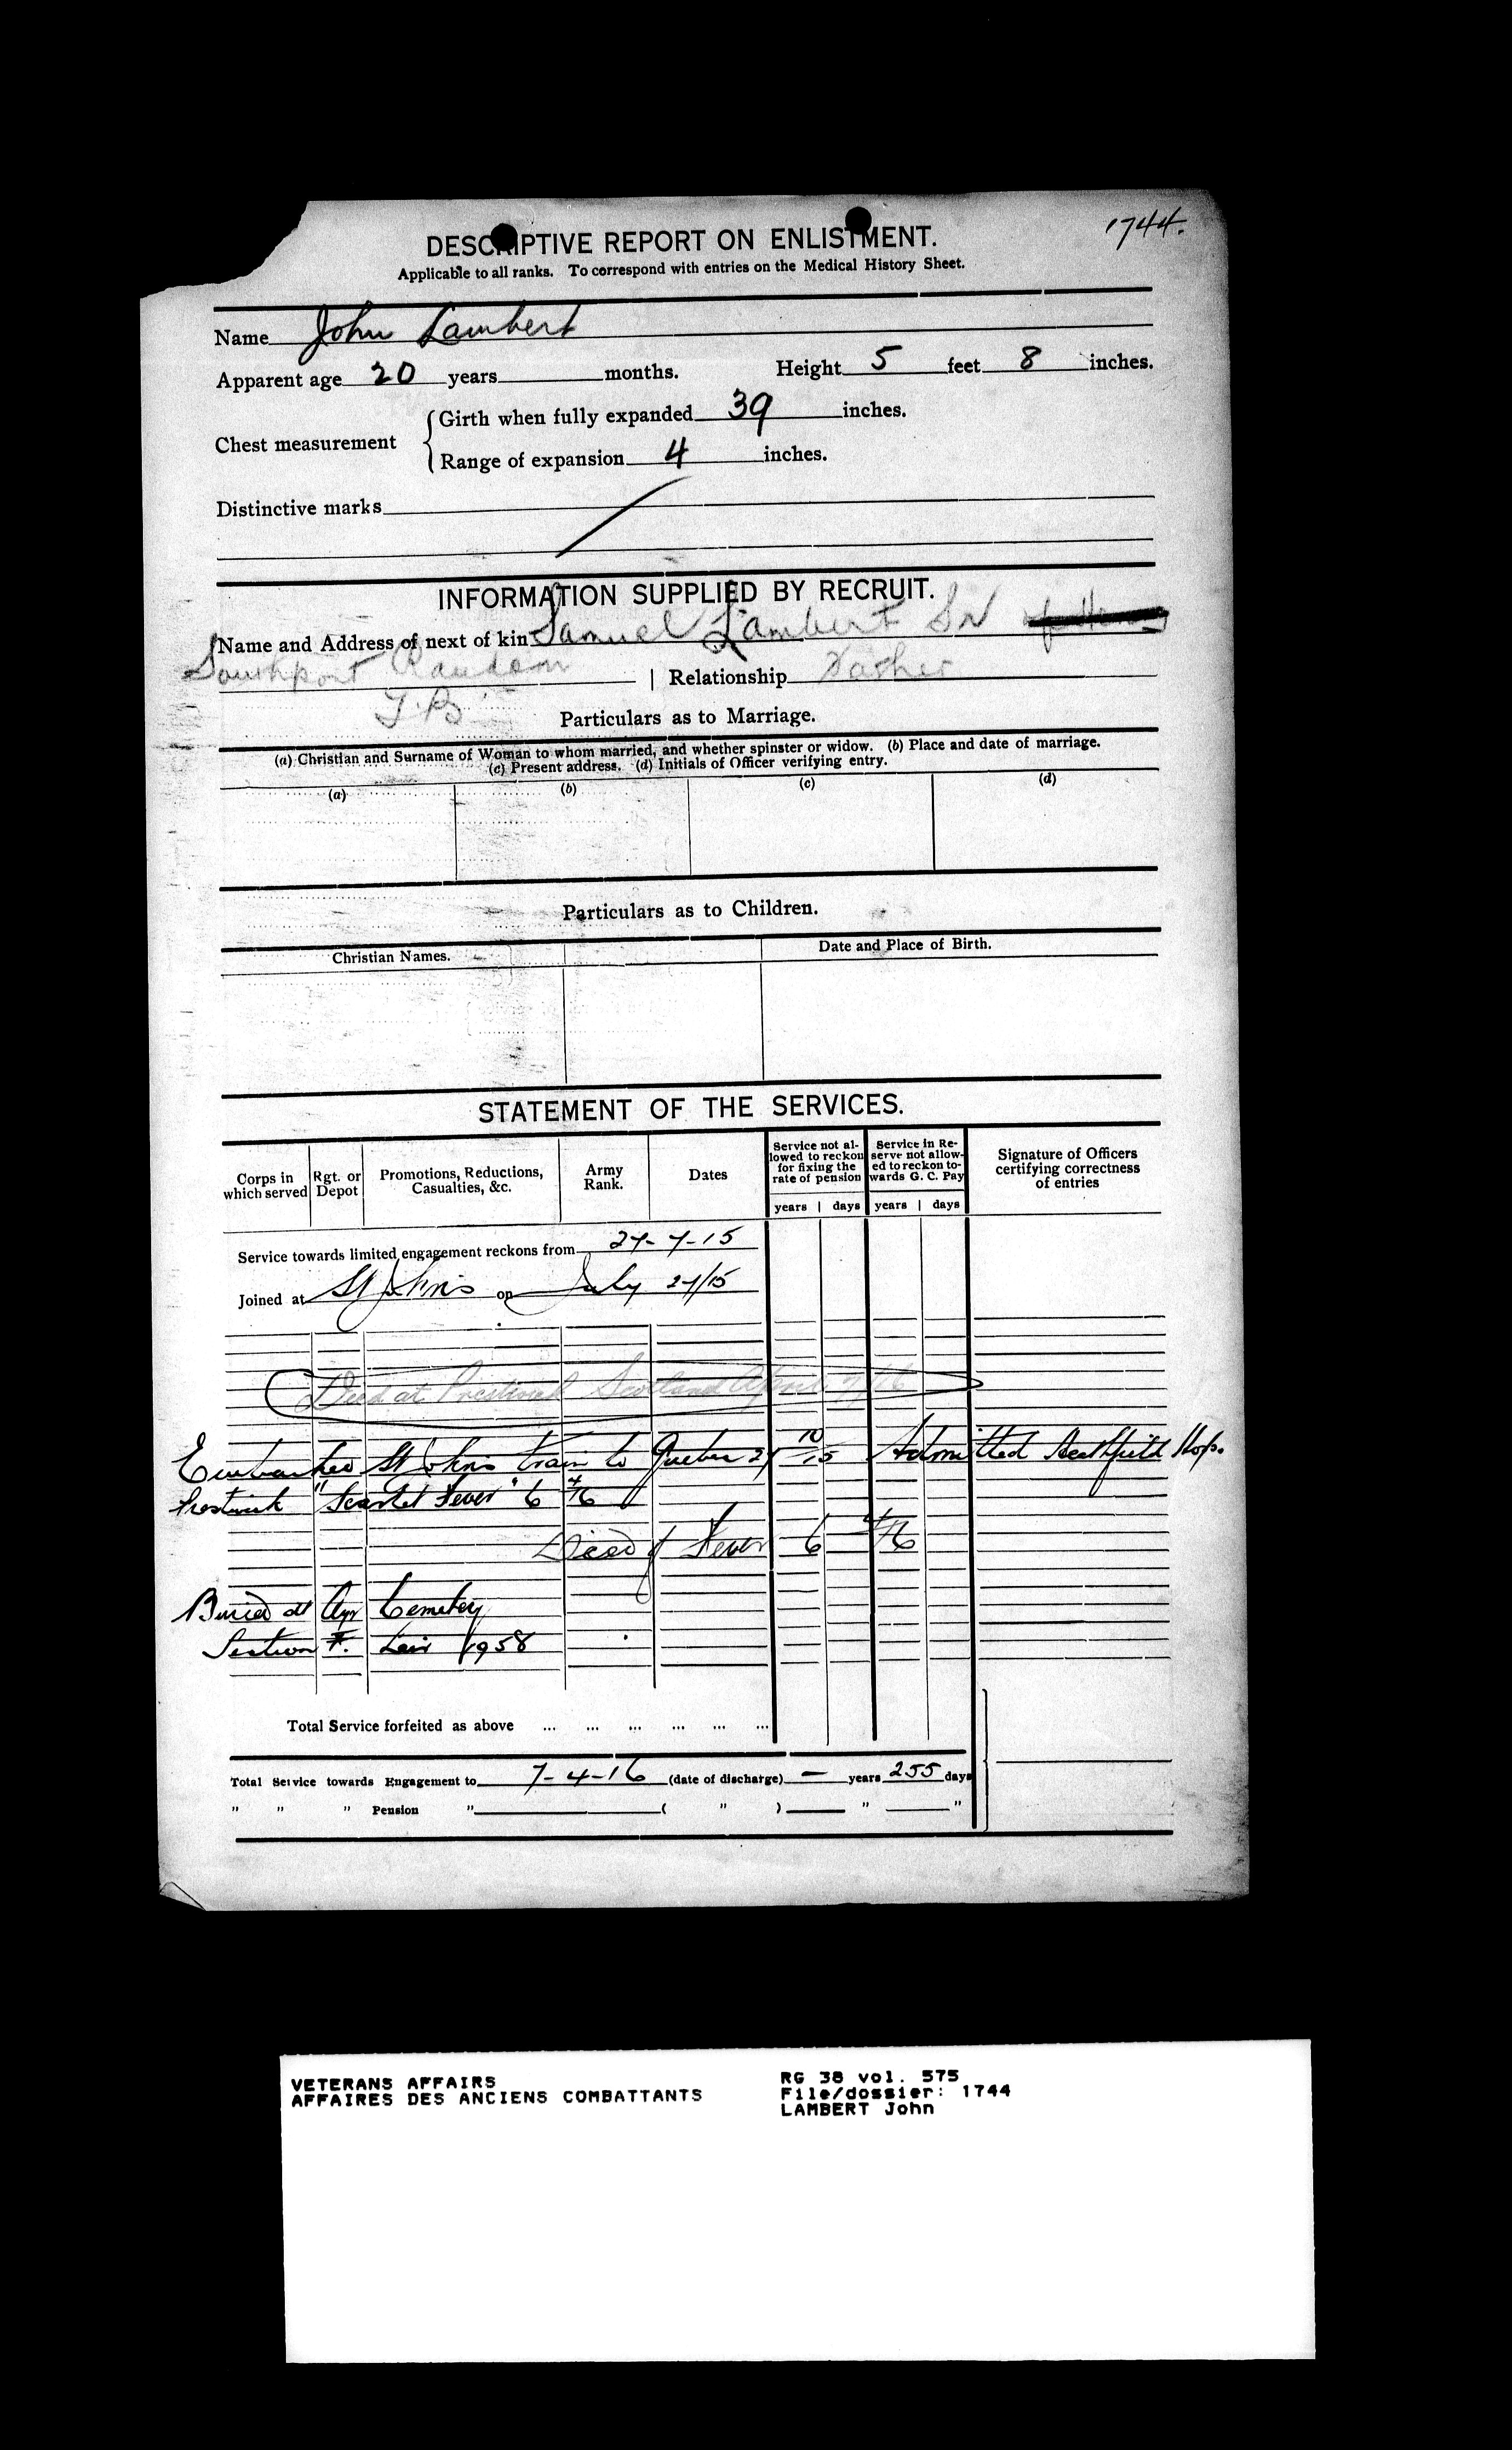 1744.
DESCRIPTIVE REPORT ON ENLISTMENT.
Applicable to all ranks. To correspond with entries on the Medical History Sheet.
Name John Lambert
Apparent age 20 years months. Height 5 feet 8 inches.
Chest measurement { Girth when fully expanded 39 inches.
Range of expansion 4 inches.
Distinctive marks
INFORMATION SUPPLIED BY RECRUIT.
Name and Address of next of kin Samuel Lambert Sr
Southport Random | Relationship Father
T.B.
Particulars as to Marriage.
(a) Christian and Surname of Woman to whom married, and whether spinster or widow. (b) Place and date of marriage.
(c) Present address. (d) Initials of Officer verifying entry.
(a) (b) (c) (d)
Particulars as to Children.
Christian Names. Date and Place of Birth.
STATEMENT OF THE SERVICES.
Corps in which served Rgt. or Depot Promotions, Reductions, Casualties, &c. Army Rank. Dates Service not allowed to reckon for fixing the rate of pension Service in Reserve not allowed to reckon towards G. C. Pay Signature of Officers certifying correctness of entries
years | days years | days
Service towards limited engagement reckons from 27-7-15
Joined at St Johns on July 27/15
Died at Prestwick Scotland April 7/16
Embarked St Johns train to Quebec 27 10/15 Admitted Heathfield Hosp.
Prestwick "Scarlet Fever" 6 4/16
Died of Fever 6 4/16
Buried at Ayr Cemetery
Section F. Lair 1958
Total Service forfeited as above ... ... ... ... ... ...
Total Service towards Engagement to 7-4-16 (date of discharge) — years 255 days
" " " Pension " ( " ) " "
VETERANS AFFAIRS
AFFAIRES DES ANCIENS COMBATTANTS
RG 38 vol. 575
File/dossier: 1744
LAMBERT John